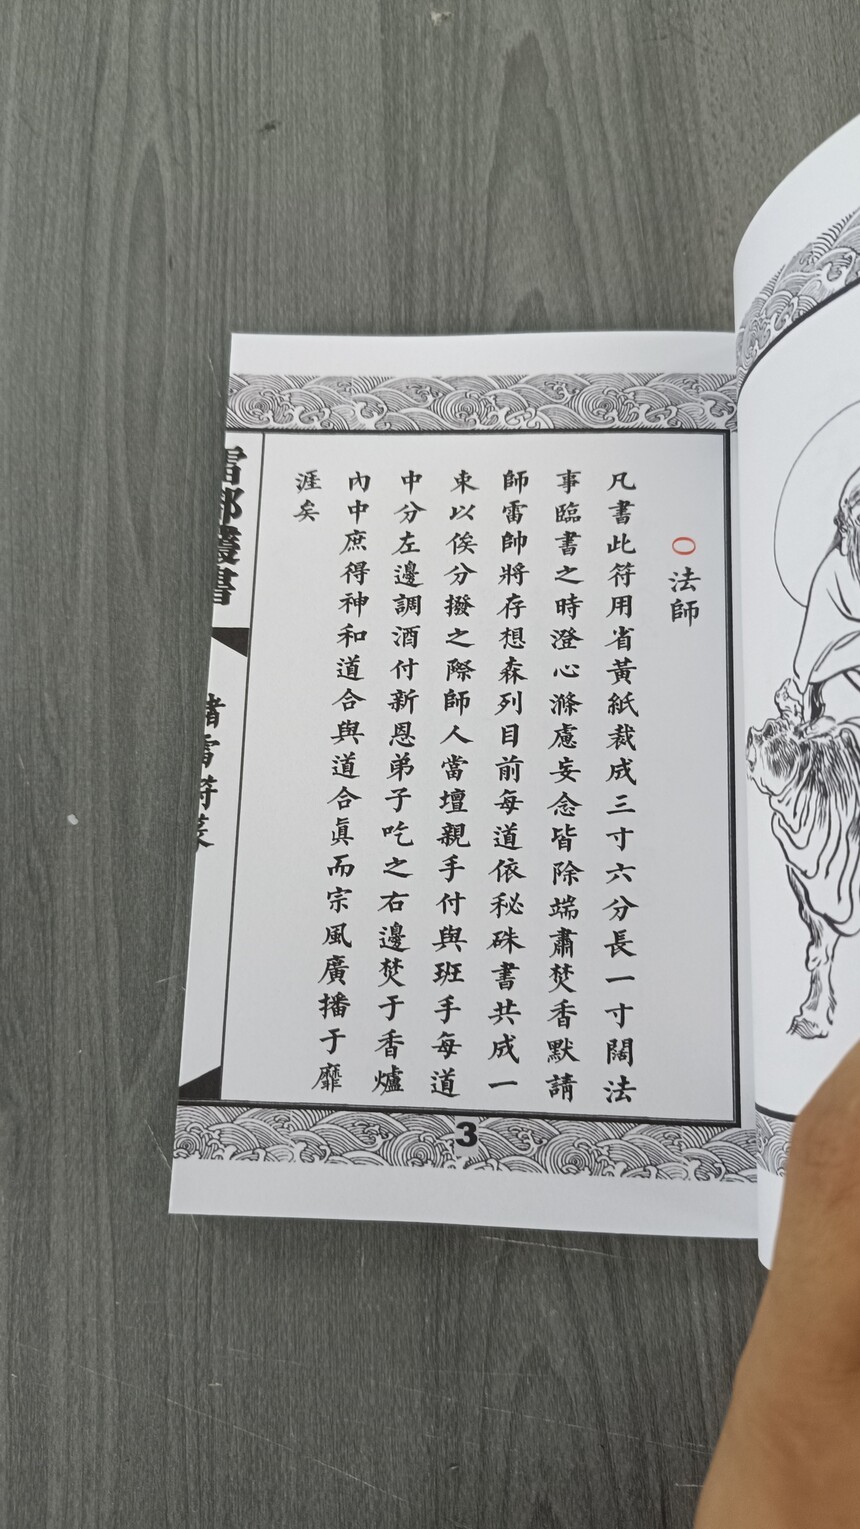 〇法師
凡書此符用省黃紙裁成三寸六分長一寸闊法
事臨書之時澄心滌慮妄念皆除端肅焚香默請
師雷帥將存想森列目前每道依秘硃書共成一
束以俟分撥之際師人當壇親手付與班手每道
中分左邊調酒付新恩弟子吃之右邊焚于香爐
內中庶得神和道合與道合眞而宗風廣播于靡
涯矣
雷部叢書
諸雷符篆
3